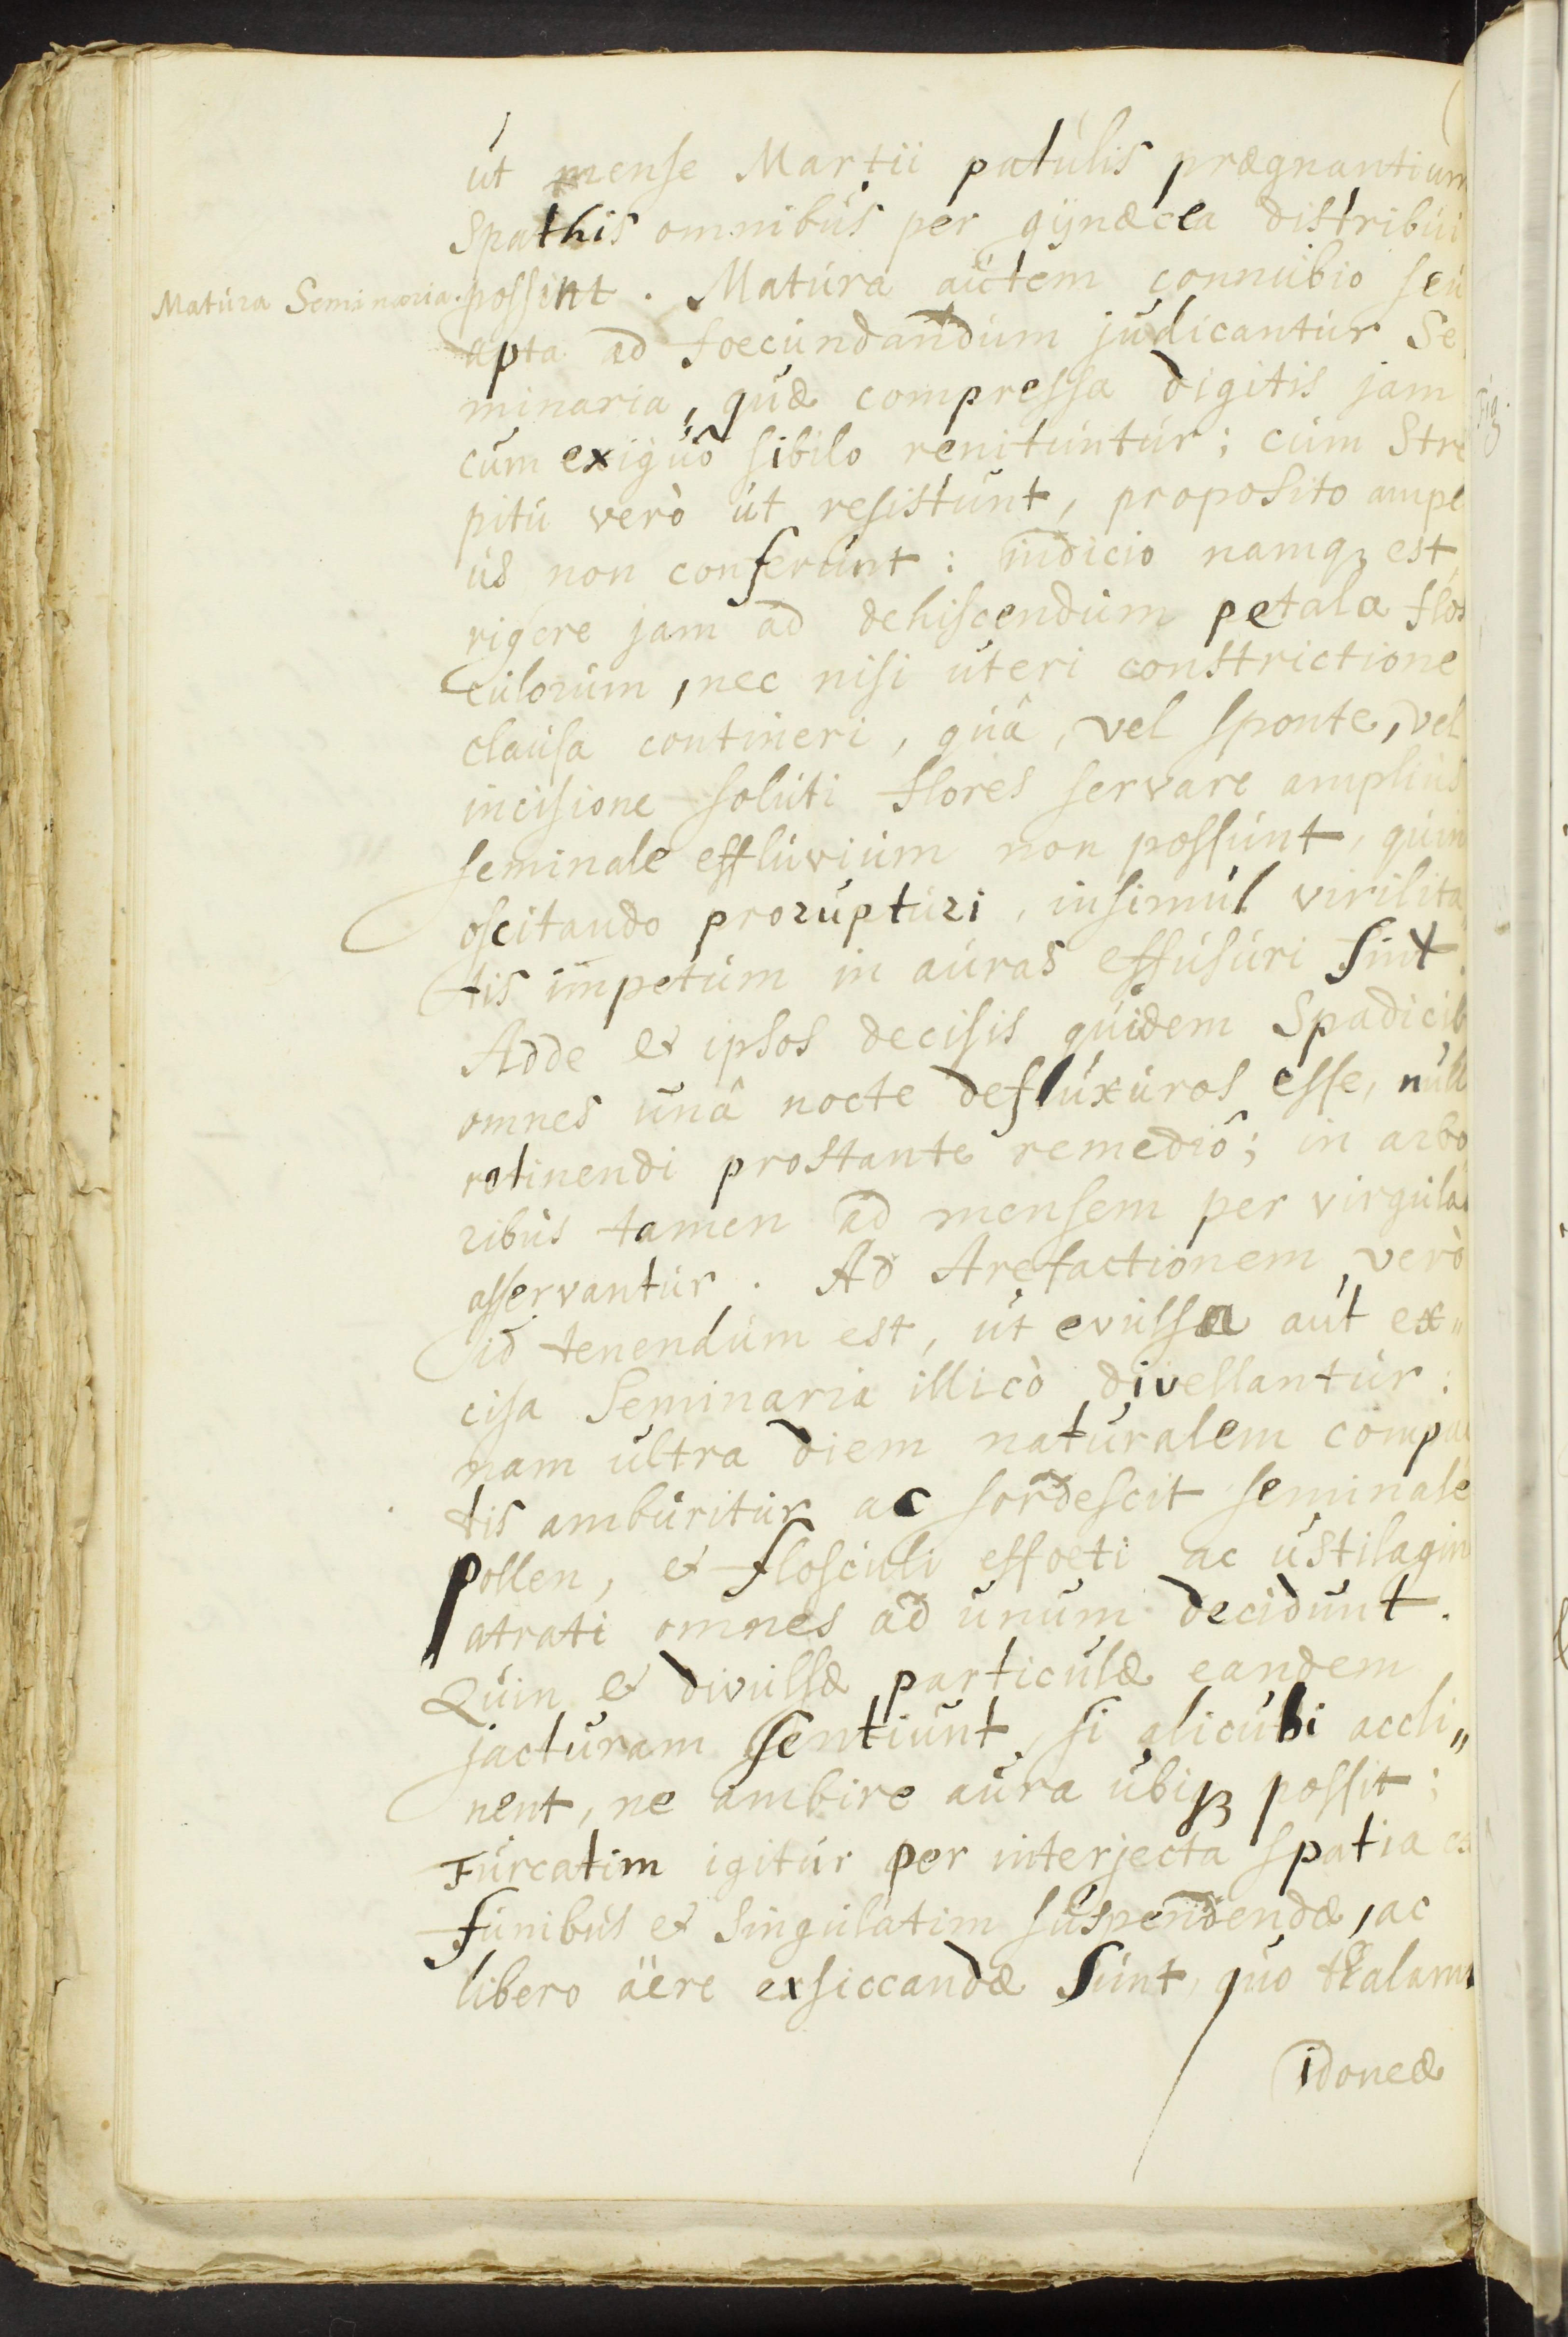 ut mense Martii patulis prægnantium
Spathis omnibus per gynæcea distribui
Matura Seminaria.
possint. Matura autem connubio seu
apta ad foecundandum judicantur Se
minaria, quæ compressa digitis jam
cum exiguo sibilo renituntur; cum Stre
pitu verò ut resistunt, proposito ampl
us non conferunt: indicio namq3 est,
rigere jam ad dehiscendum petala flos
culorum, nec nisi uteri constrictione
clausa contineri, quâ, vel sponte, vel
incisione soluti flores servare amplius
seminale effluvium non possunt, quin
oscitando prorupturi, insimul virilita
tis impetum in auras effusuri sint.
Adde & ipsos decisis quidem Spadicib
omnes unâ nocte defluxuros esse, null
retinendi prostante remediô; in arbo
ribus tamen ad mensem per virgulas
asservantur. Ad Arefactionem verò
id tenendum est, ut evulsa aut ex„
cisa Seminaria illicò divellantur:
nam ultra diem naturalem compac
tis amburitur ac sordescit seminale
pollen, & flosculi effoeti ac ustilagin
atrati omnes ad unum decidunt.
Quin & divulsæ particulæ eandem
jacturam sentiunt, si alicubi accli„
nent, ne ambire aura ubiq3 possit;
Furcatim igitur per interjecta spatia ex
funibus & singulatim suspendendæ, ac
libero äere exsiccandæ sunt, quo thalami
idoneæ
Fig.